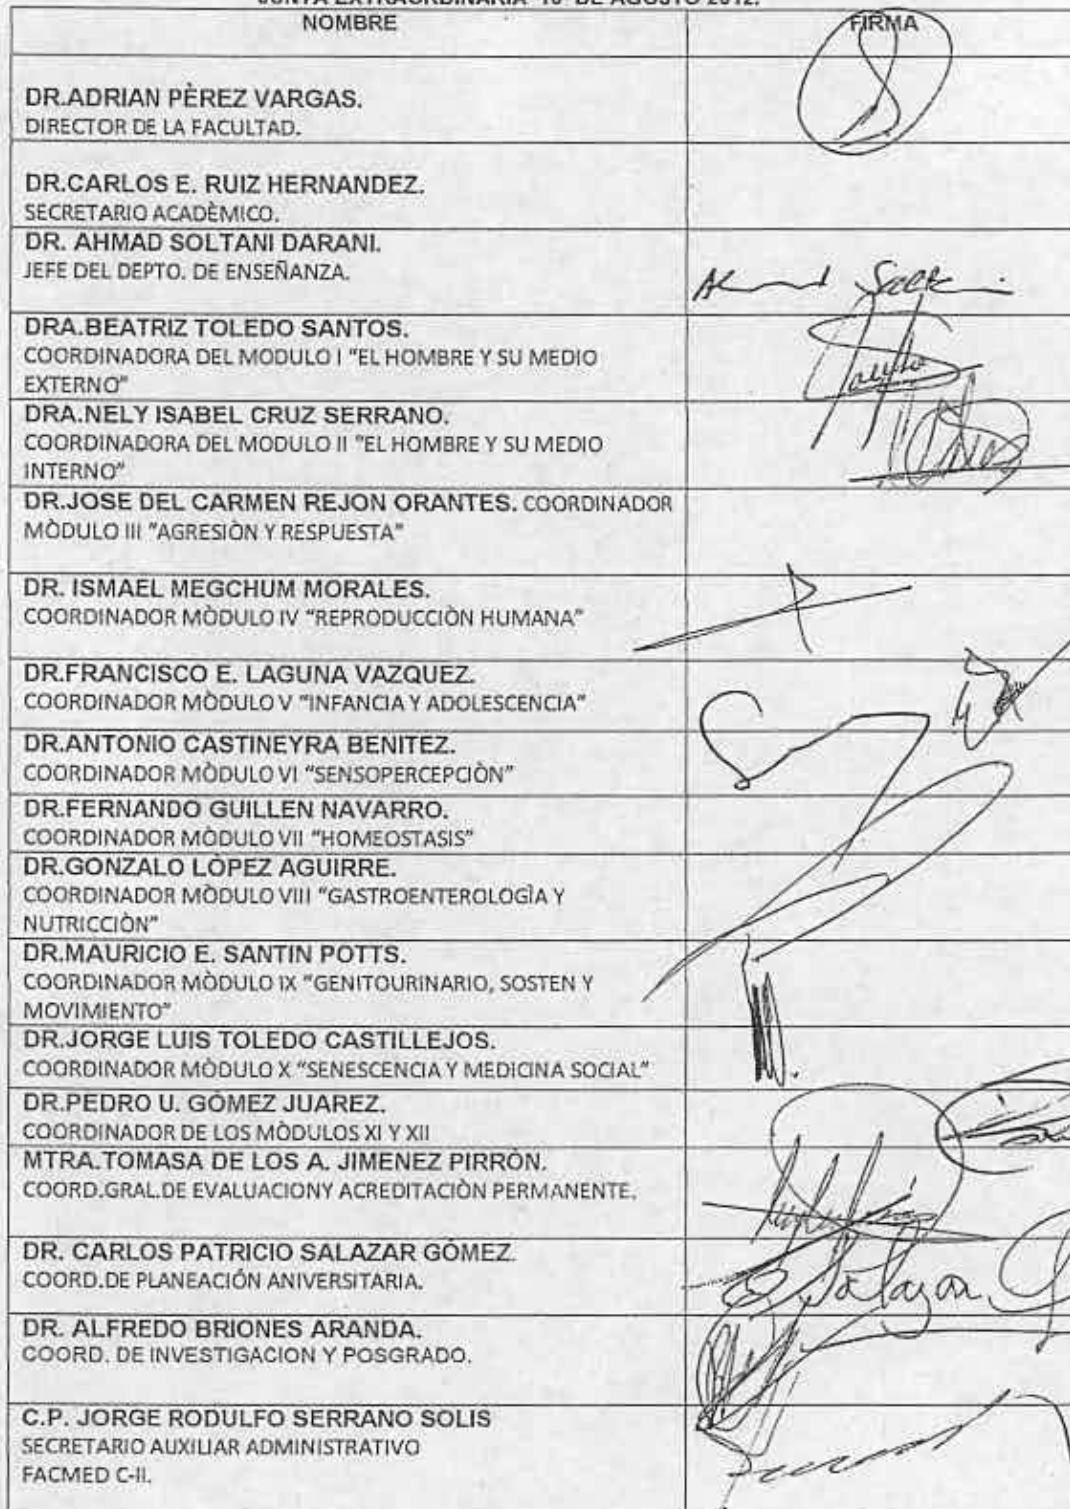 JUNTA EXTRAORDINARIA DE AGOSTO 2012.
NOMBRE FIRMA
DR.ADRIAN PÈREZ VARGAS.
DIRECTOR DE LA FACULTAD.
DR.CARLOS E. RUIZ HERNANDEZ.
SECRETARIO ACADÈMICO.
DR. AHMAD SOLTANI DARANI.
JEFE DEL DEPTO. DE ENSEÑANZA.
DRA.BEATRIZ TOLEDO SANTOS.
COORDINADORA DEL MODULO I "EL HOMBRE Y SU MEDIO
EXTERNO"
DRA.NELY ISABEL CRUZ SERRANO.
COORDINADORA DEL MODULO II "EL HOMBRE Y SU MEDIO
INTERNO"
DR.JOSE DEL CARMEN REJON ORANTES. COORDINADOR
MÒDULO III "AGRESIÒN Y RESPUESTA"
DR. ISMAEL MEGCHUM MORALES.
COORDINADOR MÒDULO IV "REPRODUCCIÒN HUMANA"
DR.FRANCISCO E. LAGUNA VAZQUEZ.
COORDINADOR MÒDULO V "INFANCIA Y ADOLESCENCIA"
DR.ANTONIO CASTINEYRA BENITEZ.
COORDINADOR MÒDULO VI "SENSOPERCEPCIÒN"
DR.FERNANDO GUILLEN NAVARRO.
COORDINADOR MÒDULO VII "HOMEOSTASIS"
DR.GONZALO LÒPEZ AGUIRRE.
COORDINADOR MÒDULO VIII "GASTROENTEROLOGÌA Y
NUTRICCIÒN"
DR.MAURICIO E. SANTIN POTTS.
COORDINADOR MÒDULO IX "GENITOURINARIO, SOSTEN Y
MOVIMIENTO"
DR.JORGE LUIS TOLEDO CASTILLEJOS.
COORDINADOR MÒDULO X "SENESCENCIA Y MEDICINA SOCIAL"
DR.PEDRO U. GÓMEZ JUAREZ.
COORDINADOR DE LOS MÒDULOS XI Y XII
MTRA.TOMASA DE LOS A. JIMENEZ PIRRÒN.
COORD.GRAL.DE EVALUACIONY ACREDITACIÒN PERMANENTE.
DR. CARLOS PATRICIO SALAZAR GÓMEZ.
COORD.DE PLANEACIÓN ANIVERSITARIA.
Salazar
DR. ALFREDO BRIONES ARANDA.
COORD. DE INVESTIGACION Y POSGRADO.
C.P. JORGE RODULFO SERRANO SOLIS
SECRETARIO AUXILIAR ADMINISTRATIVO
FACMED C-II.